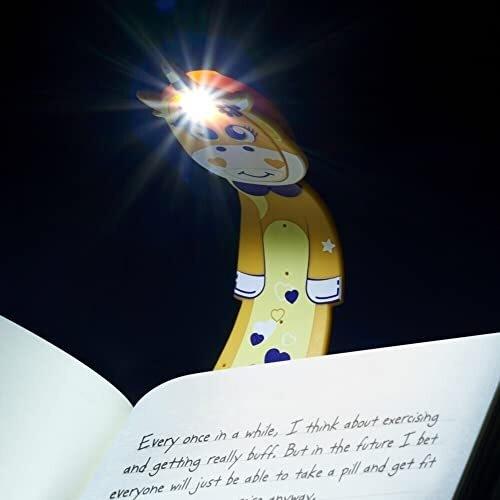 Every once in a while, I think about exercising
and getting really buff. But in the future I bet
everyone will just be able to take a pill and get fit
anyway.